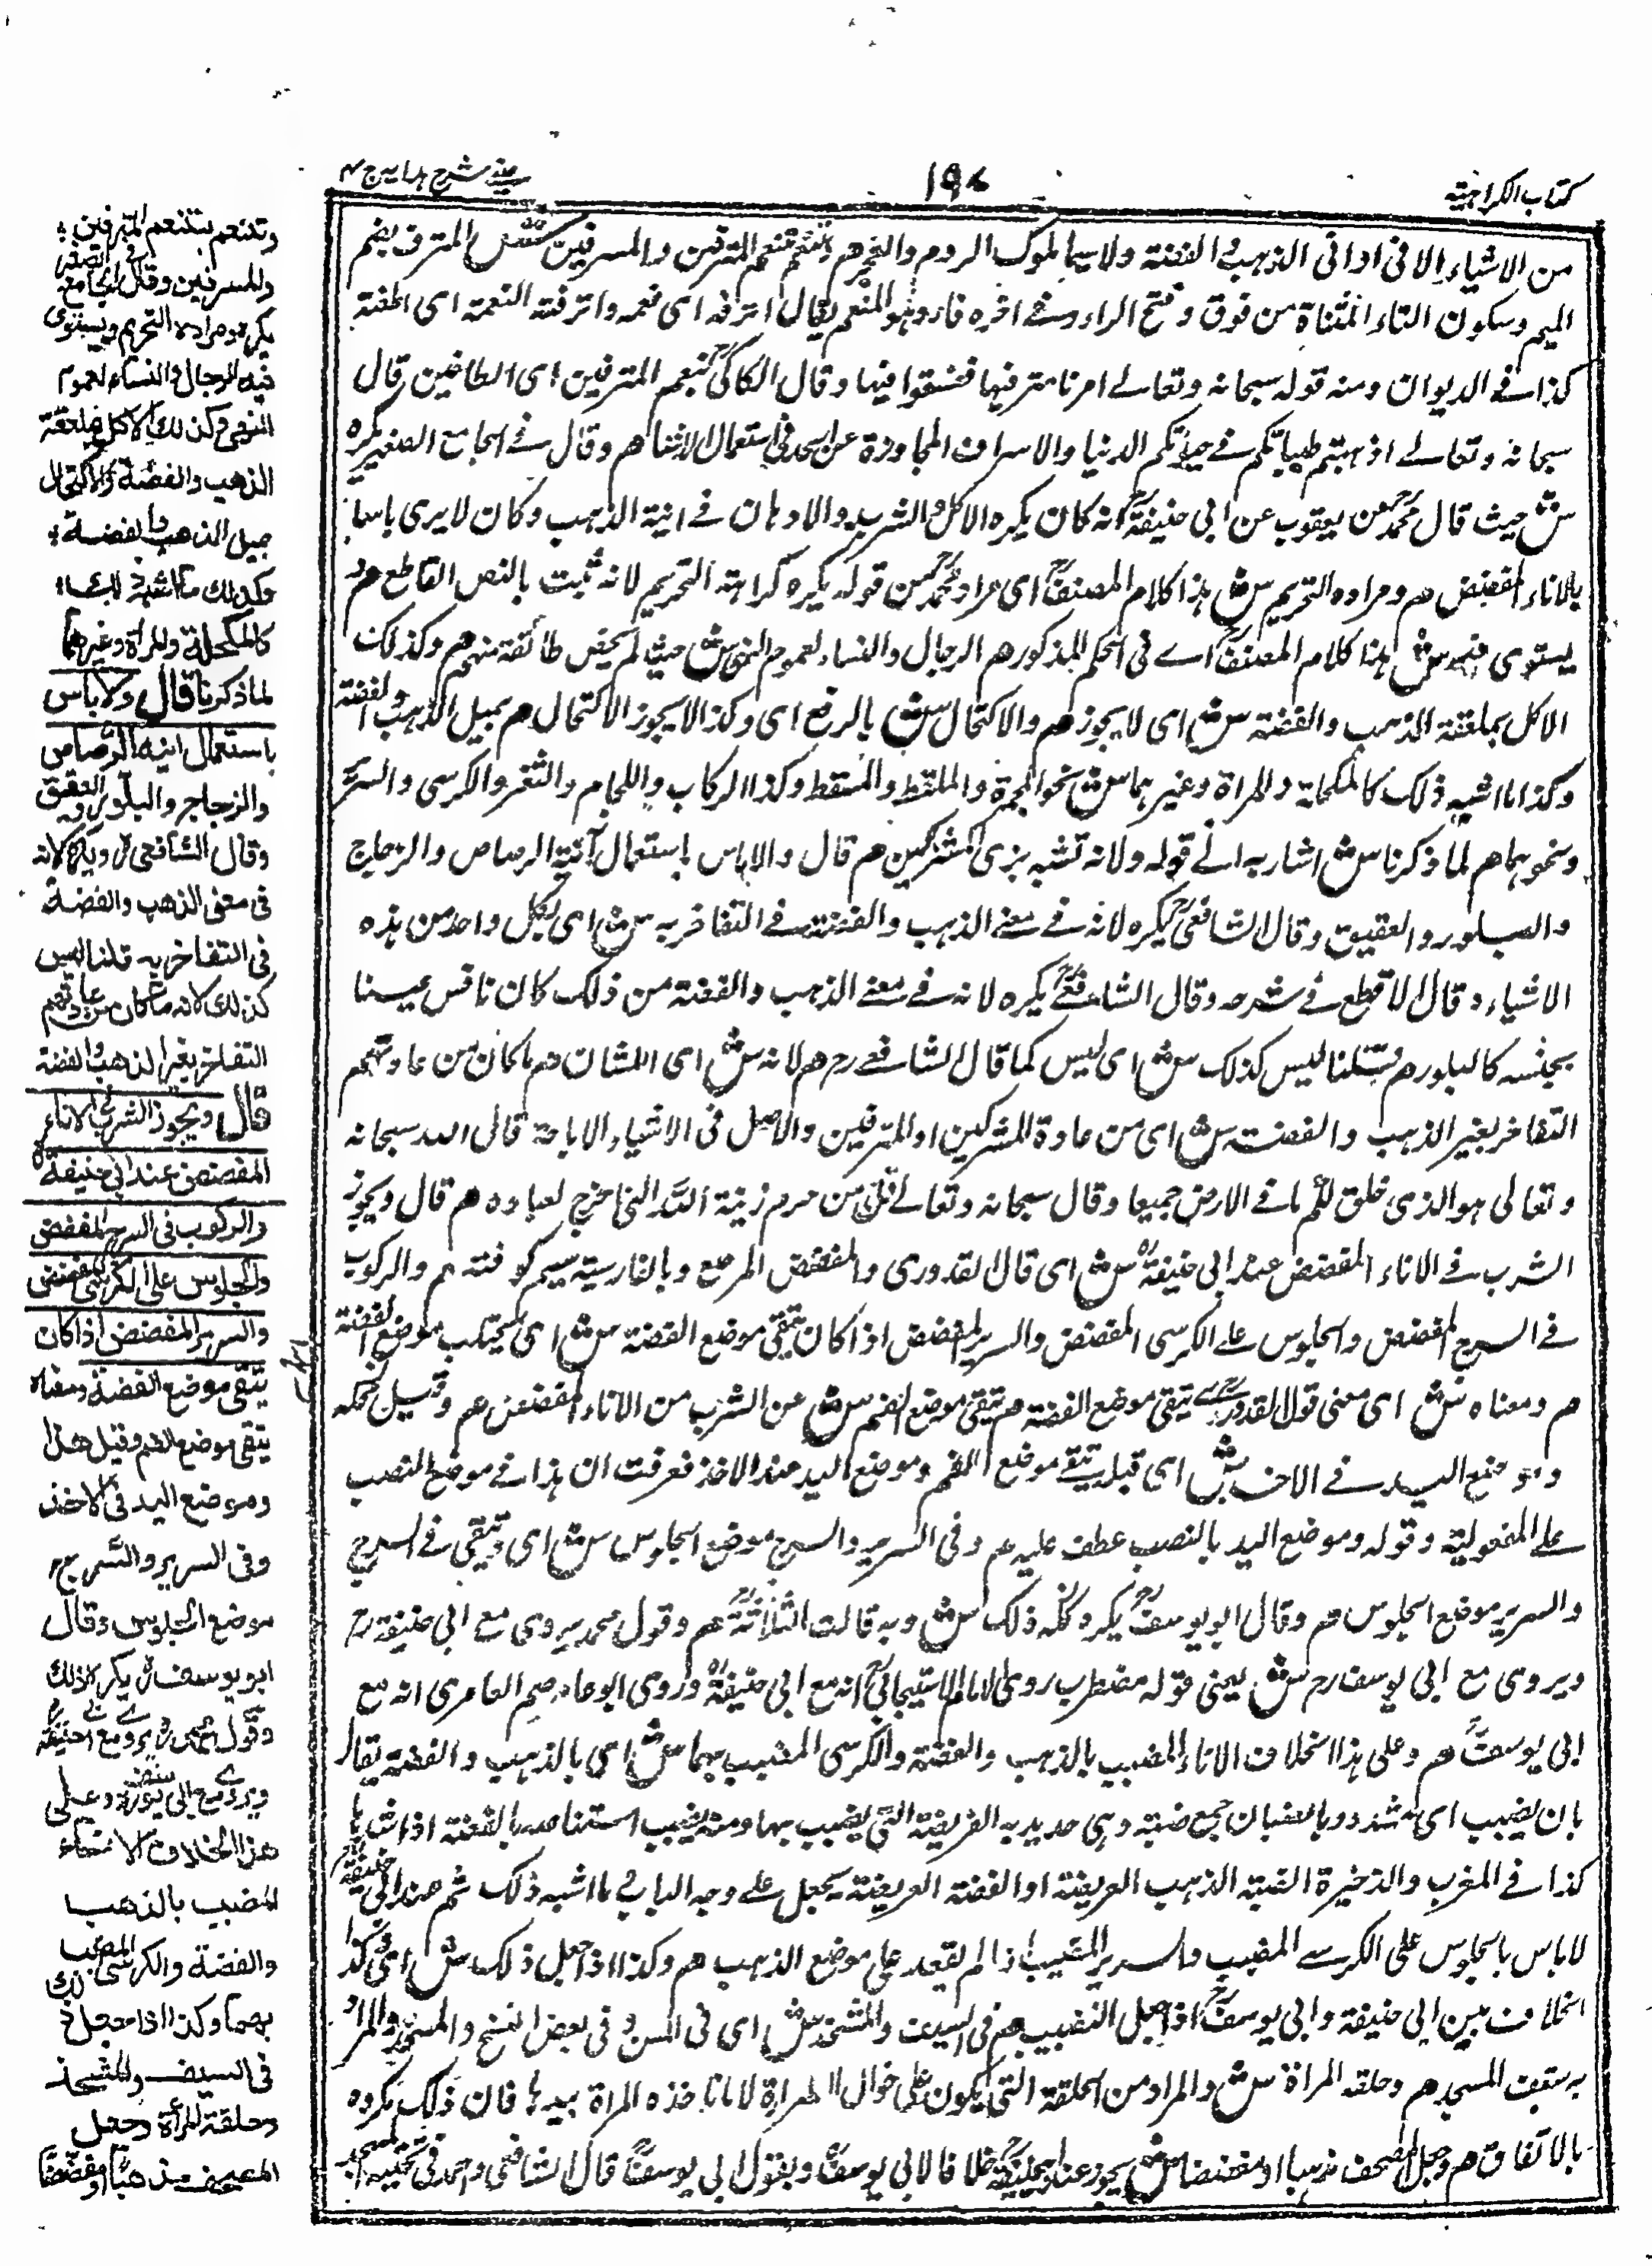 كتاب الكراهية
١٩٤
عينى شرح هدايه ج ٤
من الاشياء الا فى اوانى الذهب والفضة ولا سيما ملوك الروم والعجم هم وتنعم بتنعم المترفين والمسرفين ش المترف بضم
الميم وسكون التاء المثناة من فوق وفتح الراء وفے اخره فاء وهو المنعم يقال اترفه اى نعمه واترفته النعمة اى اطغته
كذا فے الديوان ومنه قوله سبحانه وتعالے امرنا مترفيها ففسقوا فيها وقال الكاكى تنعم المترفين اى الطاغين قال
سبحانه وتعالے اذهبتم طيباتكم فے حياتكم الدنيا والاسراف المجاوزة عن الحد فى استعمال الاشياء هم وقال فے الجامع الصغير يكره
ش حيث قال محمد عن يعقوب عن ابى حنيفة انه كان يكره الاكل والشرب والادهان فے انية الذهب وكان لا يرى باسا
بالاناء المفضض هم ومراده التحريم ش هذا كلام المصنف اى مراد محمد من قوله يكره كراهة التحريم لانه ثبت بالنص القاطع هم و
يستوى فيه ش هذا كلام المصنف اے فى الحكم المذكور هم الرجال والنساء لعموم النهى ش حيث لم يخص طائفة منهم هم وكذلك
الاكل بملعقة الذهب والفضة ش اى لا يجوز هم والاكتحال ش بالرفع اى وكذا لا يجوز الاكتحال هم بميل الذهب والفضة
وكذا ما اشبه ذلك كالمكحلة والمراة وغيرهما ش نحو المجمرة والملقط والمسقط وكذا الركاب واللجام والثفر والكرسى والسرير
ونحوهما هم لما ذكرنا ش اشار به الے قوله ولانه تشبه بزى المشركين هم قال ولا باس باستعمال آنية الرصاص والزجاج
والبلور والعقيق وقال الشافعى يكره لانه فے معنے الذهب والفضة فے التفاخر به ش اى بكل واحد من هذه
الاشياء وقال الاقطع فے شرحه وقال الشافعے يكره لانه فے معنے الذهب والفضة من ذلك كان نافس عينا
بجنسه كالبلور هم قلنا ليس كذلك ش اى ليس كما قال الشافعے رح هم لانه ش اى الشان هم ما كان من عادتهم
التفاخر بغير الذهب والفضة ش اى من عادة المشركين او المترفين والاصل فى الاشياء الاباحة قال الله سبحانه
وتعالى هو الذى خلق لكم ما فے الارض جميعا وقال سبحانه وتعالے قل من حرم زينة الله التى اخرج لعباده هم قال ويجوز
الشرب فے الاناء المفضض عند ابى حنيفة ش اى قال القدورى والمفضض المرصع وبالفارسية سيم كوفته هم والركوب
فے السرج المفضض والجلوس علے الكرسى المفضض والسرير المفضض اذا كان يتقى موضع الفضة ش اى يجتنب موضع الفضة
هم ومعناه ش اى معنى قول القدورى يتقى موضع الفضة هم يتقى موضع الفم ش عن الشرب من الاناء المفضض هم وقيل هذا
وموضع اليد فے الاخذ ش اى قيل يتقے موضع الفم وموضع اليد عند الاخذ فعرفت ان هذا فے موضع النصب
علے المفعولية وقوله وموضع اليد بالنصب عطف عليه هم وفى السرير والسرج موضع الجلوس ش اى ويتقى فے السرج
والسرير موضع الجلوس هم وقال ابو يوسف يكره كله ذلك ش وبه قالت الثلاثة هم وقول محمد يروى مع ابى حنيفة رح
ويروى مع ابى يوسف رح ش يعنى قوله مضطرب روى الامام الاسبيجابى انه مع ابى حنيفة وروى ابو عاصم العامرى انه مع
ابى يوسف هم وعلى هذا الخلاف الاناء المضبب بالذهب والفضة والكرسى المضبب بهما ش اى بالذهب والفضة يقال
باب مضبب اى مشدود بالضباب جمع ضبة وهى حديدة العريضة التى يضبب بها ومنه يضبب اسنانه بالفضة اذا شدها
كذا فے المغرب والذخيرة الضبة الذهب العريضة او الفضة العريضة يجعل علے وجه الباب وما اشبه ذلك ثم عند ابى حنيفة
لا باس بالجلوس على الكرسے المضبب والسرير المضبب اذا لم يقعد على موضع الذهب هم وكذا اذا جعل ذلك ش اى وكذا
الخلاف بين ابى حنيفة وابى يوسف اذا جعل التضبيب هم فى السيف والمشحذ ش اى فى المسن وفى بعض النسخ والمسجد والمراد
به سقف المسجد هم وحلقة المراة ش والمراد من الحلقة التى يكون على حوالى المراة لا ما تاخذه المراة بيدها فان ذلك مكروه
بالاتفاق هم وجعل المصحف مذهبا او مفضضا ش يجوز عند ابى حنيفة خلافا لابى يوسف وبقول ابى يوسف قال الشافعى واحمد فى تحلية المسجد
وتنعم بتنعم المترفين
والمسرفين وقال فى الجامع الصغير
يكره ومراده التحريم ويستوى
فيه الرجال والنساء لعموم
النهى وكذلك الاكل بملعقة
الذهب والفضة والاكتحال
بميل الذهب والفضة
وكذلك ما اشبه ذلك
كالمكحلة والمراة وغيرهما
لما ذكرنا قال ولا باس
باستعمال انية الرصاص
والزجاج والبلور والعقيق
وقال الشافعى رح يكره لانه
فى معنى الذهب والفضة
فى التفاخر به قلنا ليس
كذلك لانه ما كان من عادتهم
التفاخر بغير الذهب والفضة
قال ويجوز الشرب فى الاناء
المفضض عند ابى حنيفة رح
والركوب فى السرج المفضض
والجلوس على الكرسى المفضض
والسرير المفضض اذا كان
يتقى موضع الفضة ومعناه
يتقى موضع الفم وقيل هذا
وموضع اليد فى الاخذ
وفى السرير والسرج
موضع الجلوس وقال
ابو يوسف رح يكره ذلك
وقول محمد رح يروى مع ابى حنيفة
ويروى مع ابى يوسف وعلى
هذا الخلاف الاناء
المضبب بالذهب
والفضة والكرسى المضبب
بهما وكذا اذا جعل ذلك
فى السيف والمشحذ
وحلقة المراة وجعل
المصحف مذهبا او مفضضا